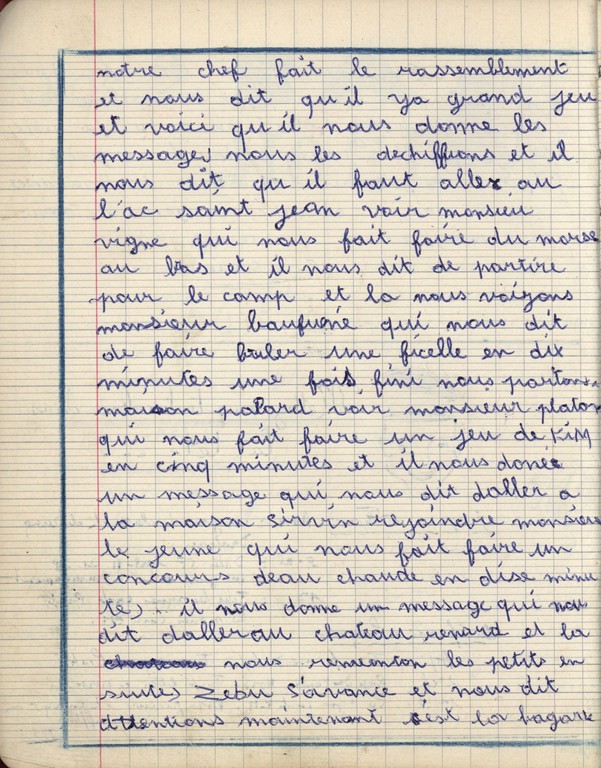 notre chef fait le rassemblement
et nous dit qu'il ya grand jeu
et voici qu'il nous donne les
messages nous les dechiffrons et il
nous dit qu il faut aller au
l'ac saint jean voir monsieu
vigne qui nous fait faire du morse
au bas et il nous dit de partire
pour le camp et la nous voizons
monsieur baufumé qui nous dit
de faire bruler une ficelle en dix
minutes une fois fini nous partons
maison palard voir monsieur platon
qui nous fait faire un jeu de KiM
en cinq minutes et il nous donée
un message qui nous dit daller a
la maison sirvin rejoindre monsieu
le jeune qui nous fait faire un
concours deau chaude en dise minu
tes . il nous donne un message qui nou
dit daller au chateau renard et la
nous les petits en
suites Zebu s'avance et nous dit
attentions maintenant c'est la bagare